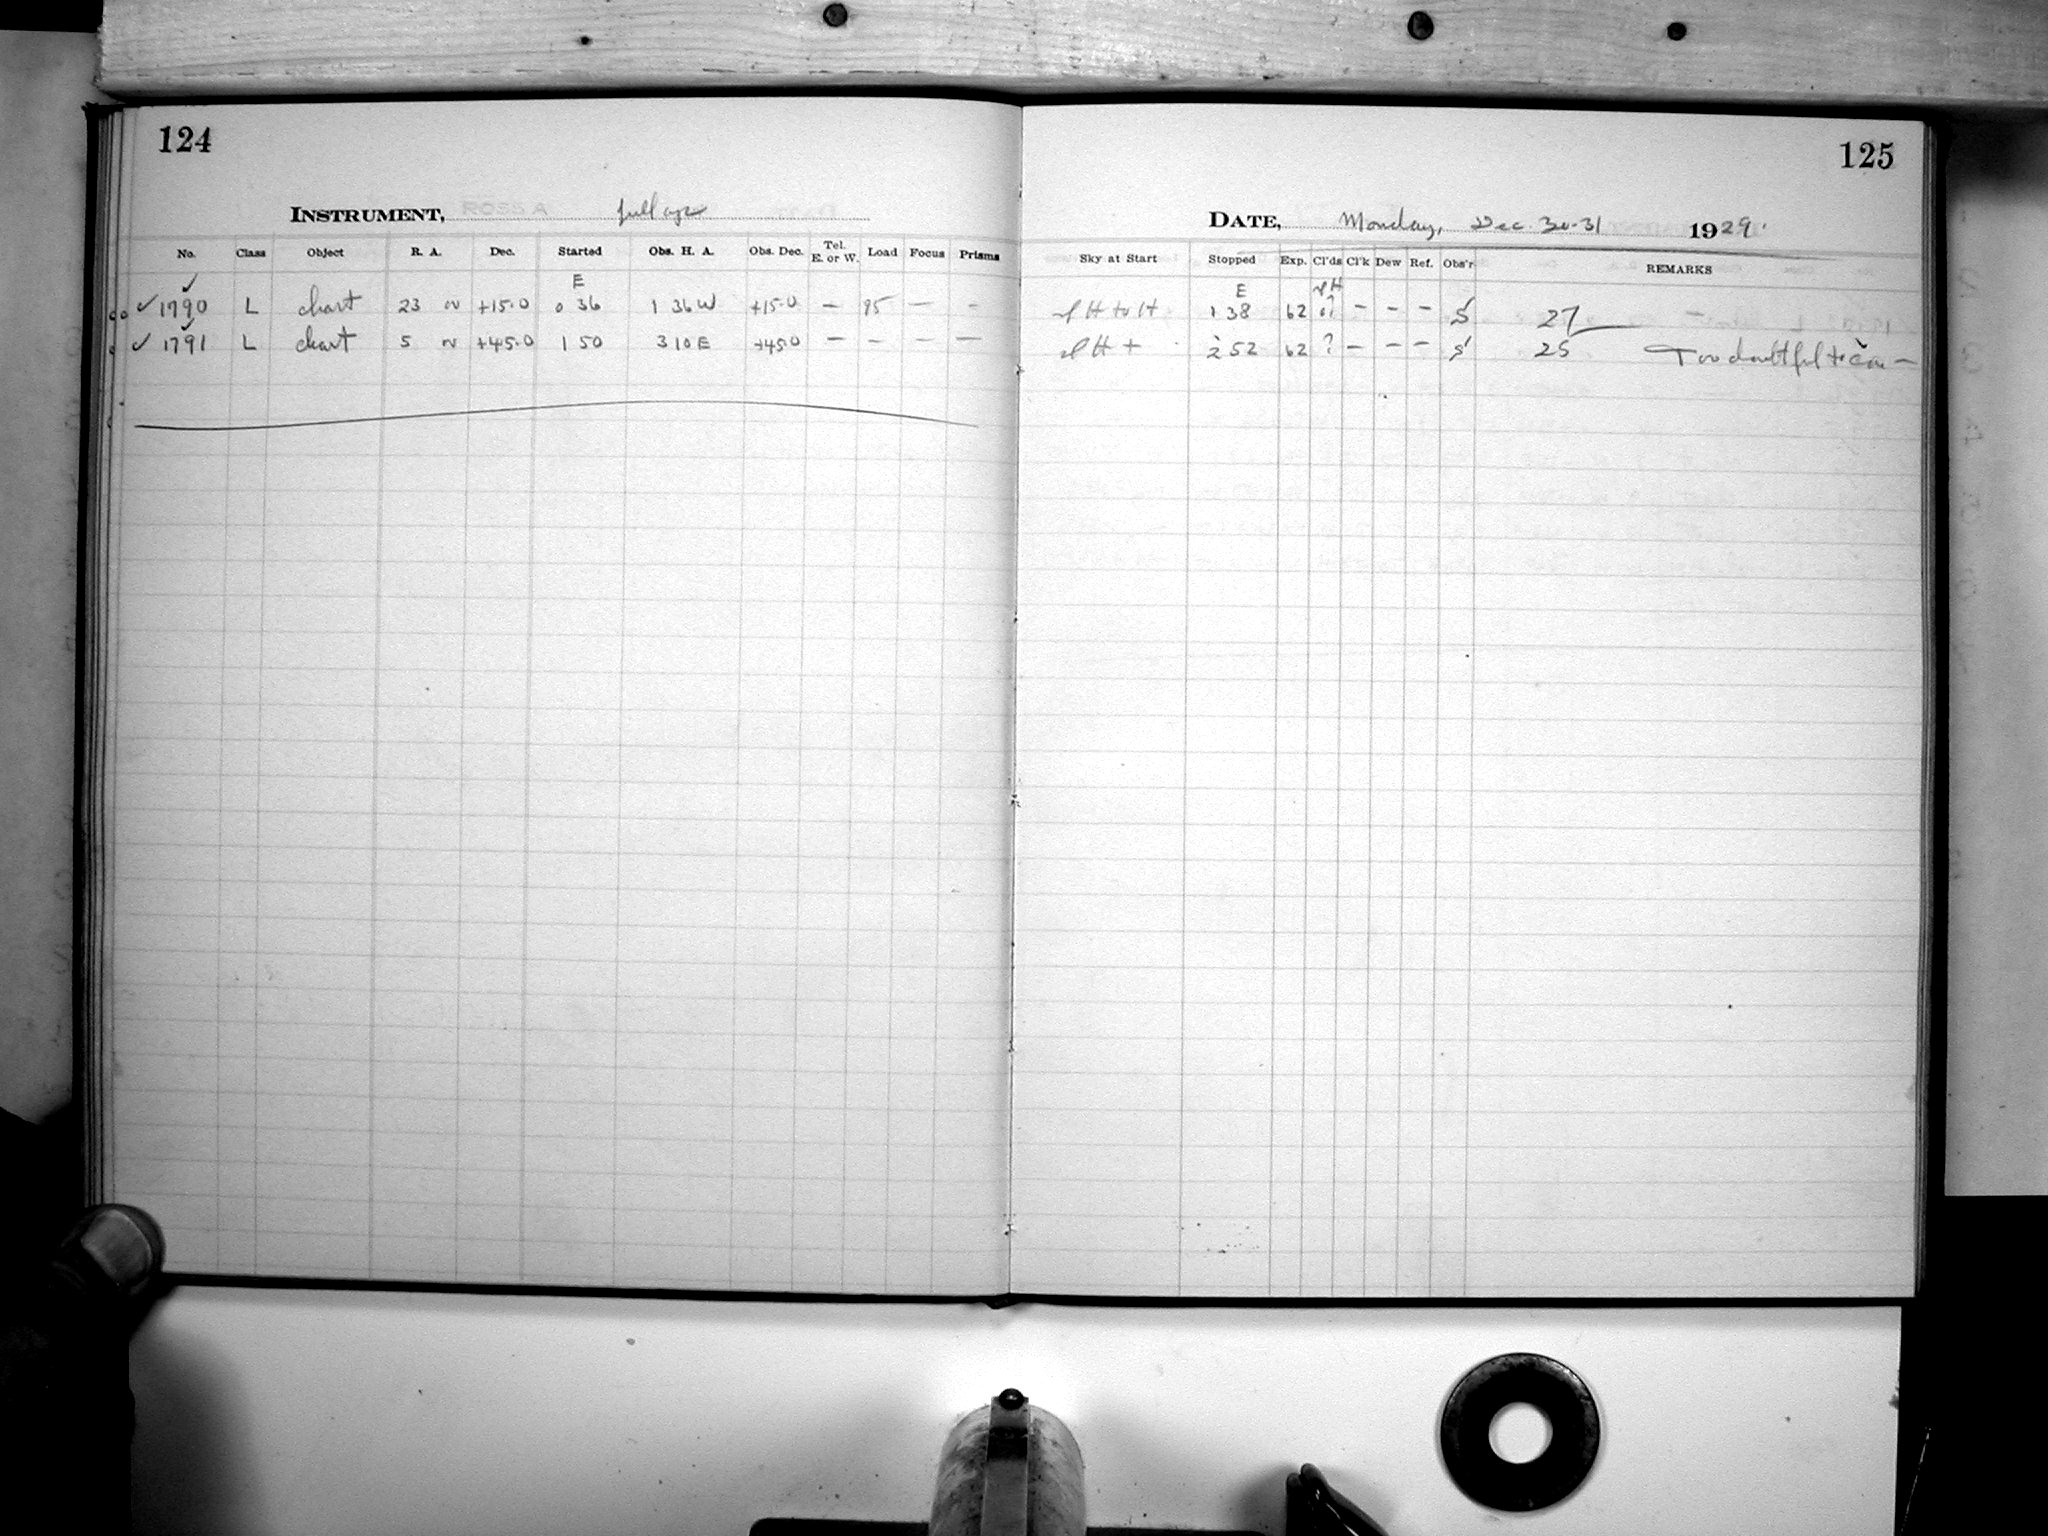 124
125
INSTRUMENT, ROSS A full ap
DATE, Monday, Dec. 30-31 1929.
No. Class Object R. A. Dec. Started Obs. H. A. Obs. Dec. Tel. E. or W. Load Focus Prisms
Sky at Start Stopped Exp. Cl'ds Cl'k Dew Ref. Obs'r REMARKS
✓ E
E
✓ 1790 L chart 23 N +15.0 0 36 1 36 W +15.0 — 95 — -
H to H 1 38 62 ? - - - S 27
✓ 1791 L chart 5 N +45.0 1 50 3 10 E +45.0 — - — —
H + 2 52 62 ? - - - S 25 Too doubtful to